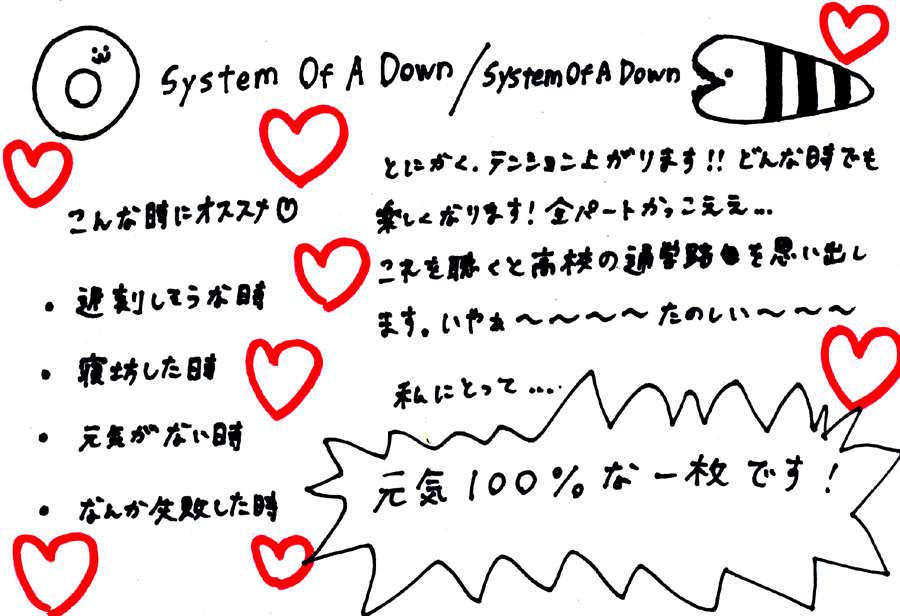 System Of A Down / System Of A Down
こんな時にオススメ♡
・ 遅刻しそうな時
・ 寝坊した時
・ 元気がない時
・ なんか失敗した時
とにかく、テンション上がります!! どんな時でも
楽しくなります! 全パートかっこええ...
これを聴くと高校の通学路を思い出し
ます。いやぁ〜〜〜〜たのしい〜〜〜
私にとって....
元気100%な一枚です!